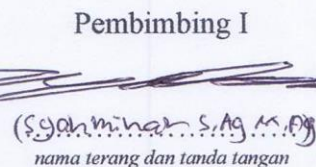 Pembimbing I
(Syahminan S.Ag M.Ag)
nama terang dan tanda tangan